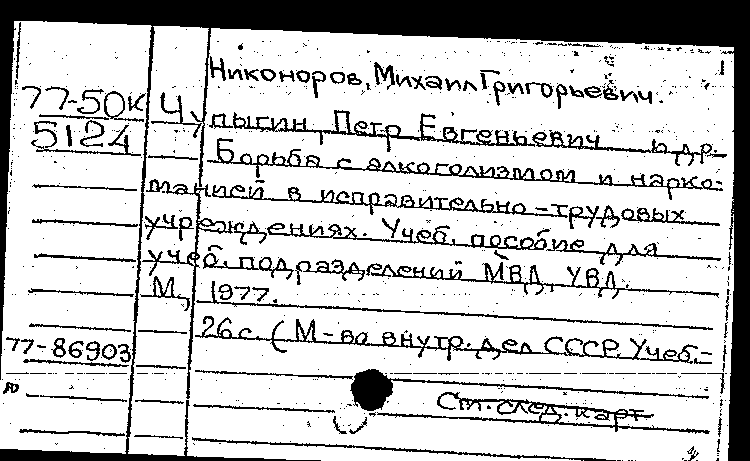 Никоноров, Михаил Григорьевич.
77-50к Чу
5124 пыгин, Петр Евгеньевич и др.
Борьба с алкоголизмом и нарко-
манией в исправительно-трудовых
учреждениях. Учеб. пособие для
учеб. подразделений МВД, УВД.
М., 1977.
26 с. (М-во внутр. дел СССР. Учеб.-
77-86903
См. след. карт